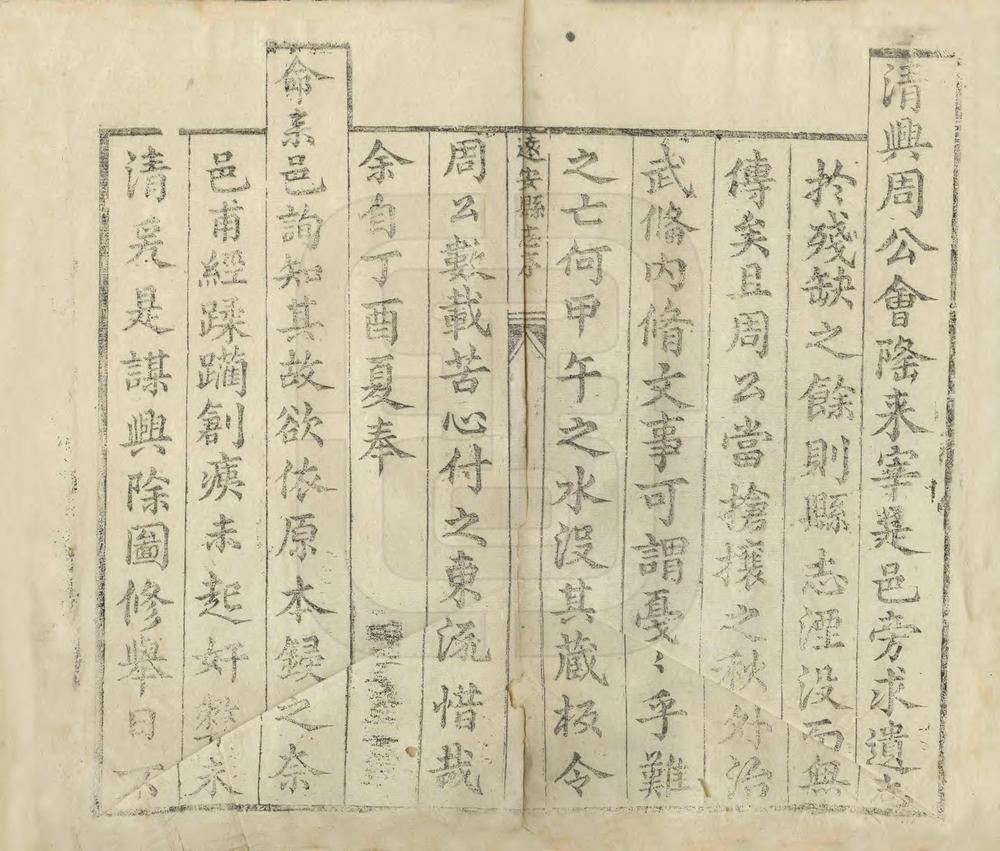 清興周公會隆来宰是邑旁求遺志
扵殘缺之餘則縣志湮没而無
傳矣且周公當搶攘之秋外治
武俻内脩文事可謂憂〻乎難
之亡何甲午之水没其藏板令
遠安縣志序
周公數載苦心付之東流惜哉
余自丁酉夏奉
命来邑詢知其故欲依原本録之奈
邑甫經蹂躪創痍未起奸弊未
清爰是謀興除圖修舉日不